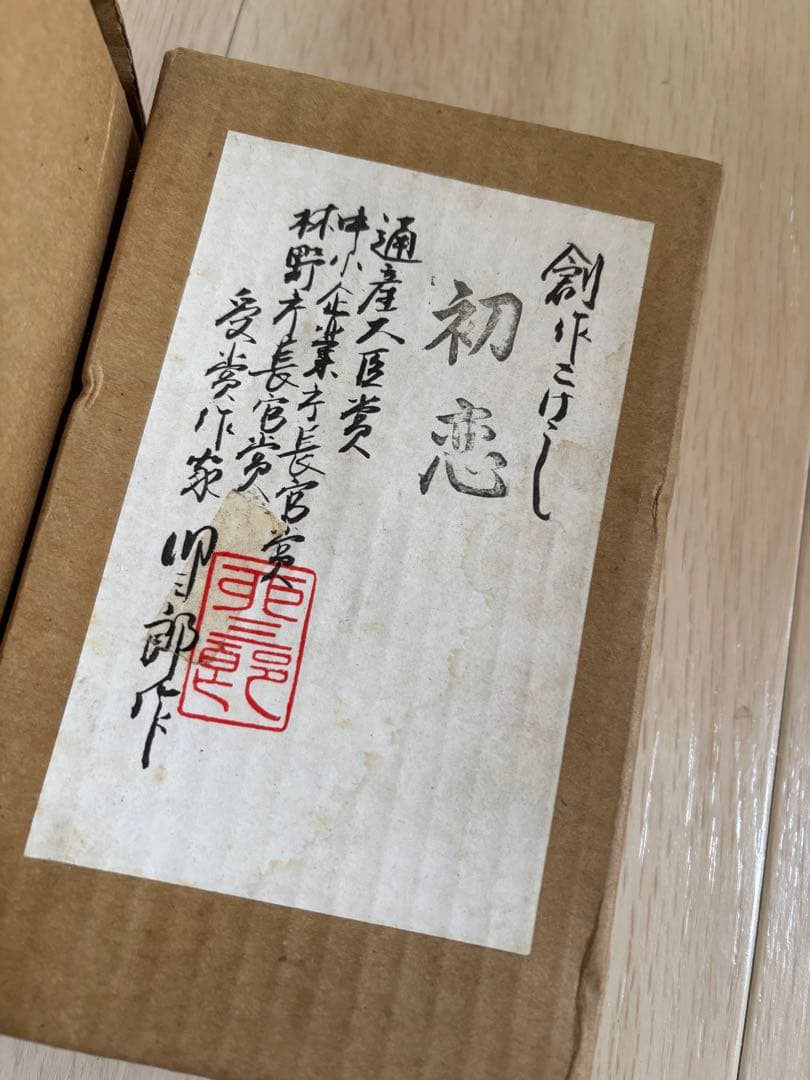 創作こけし
初恋
通産大臣賞
中小企業庁長官賞
林野庁長官賞
受賞作家 卯三郎作
卯三郎